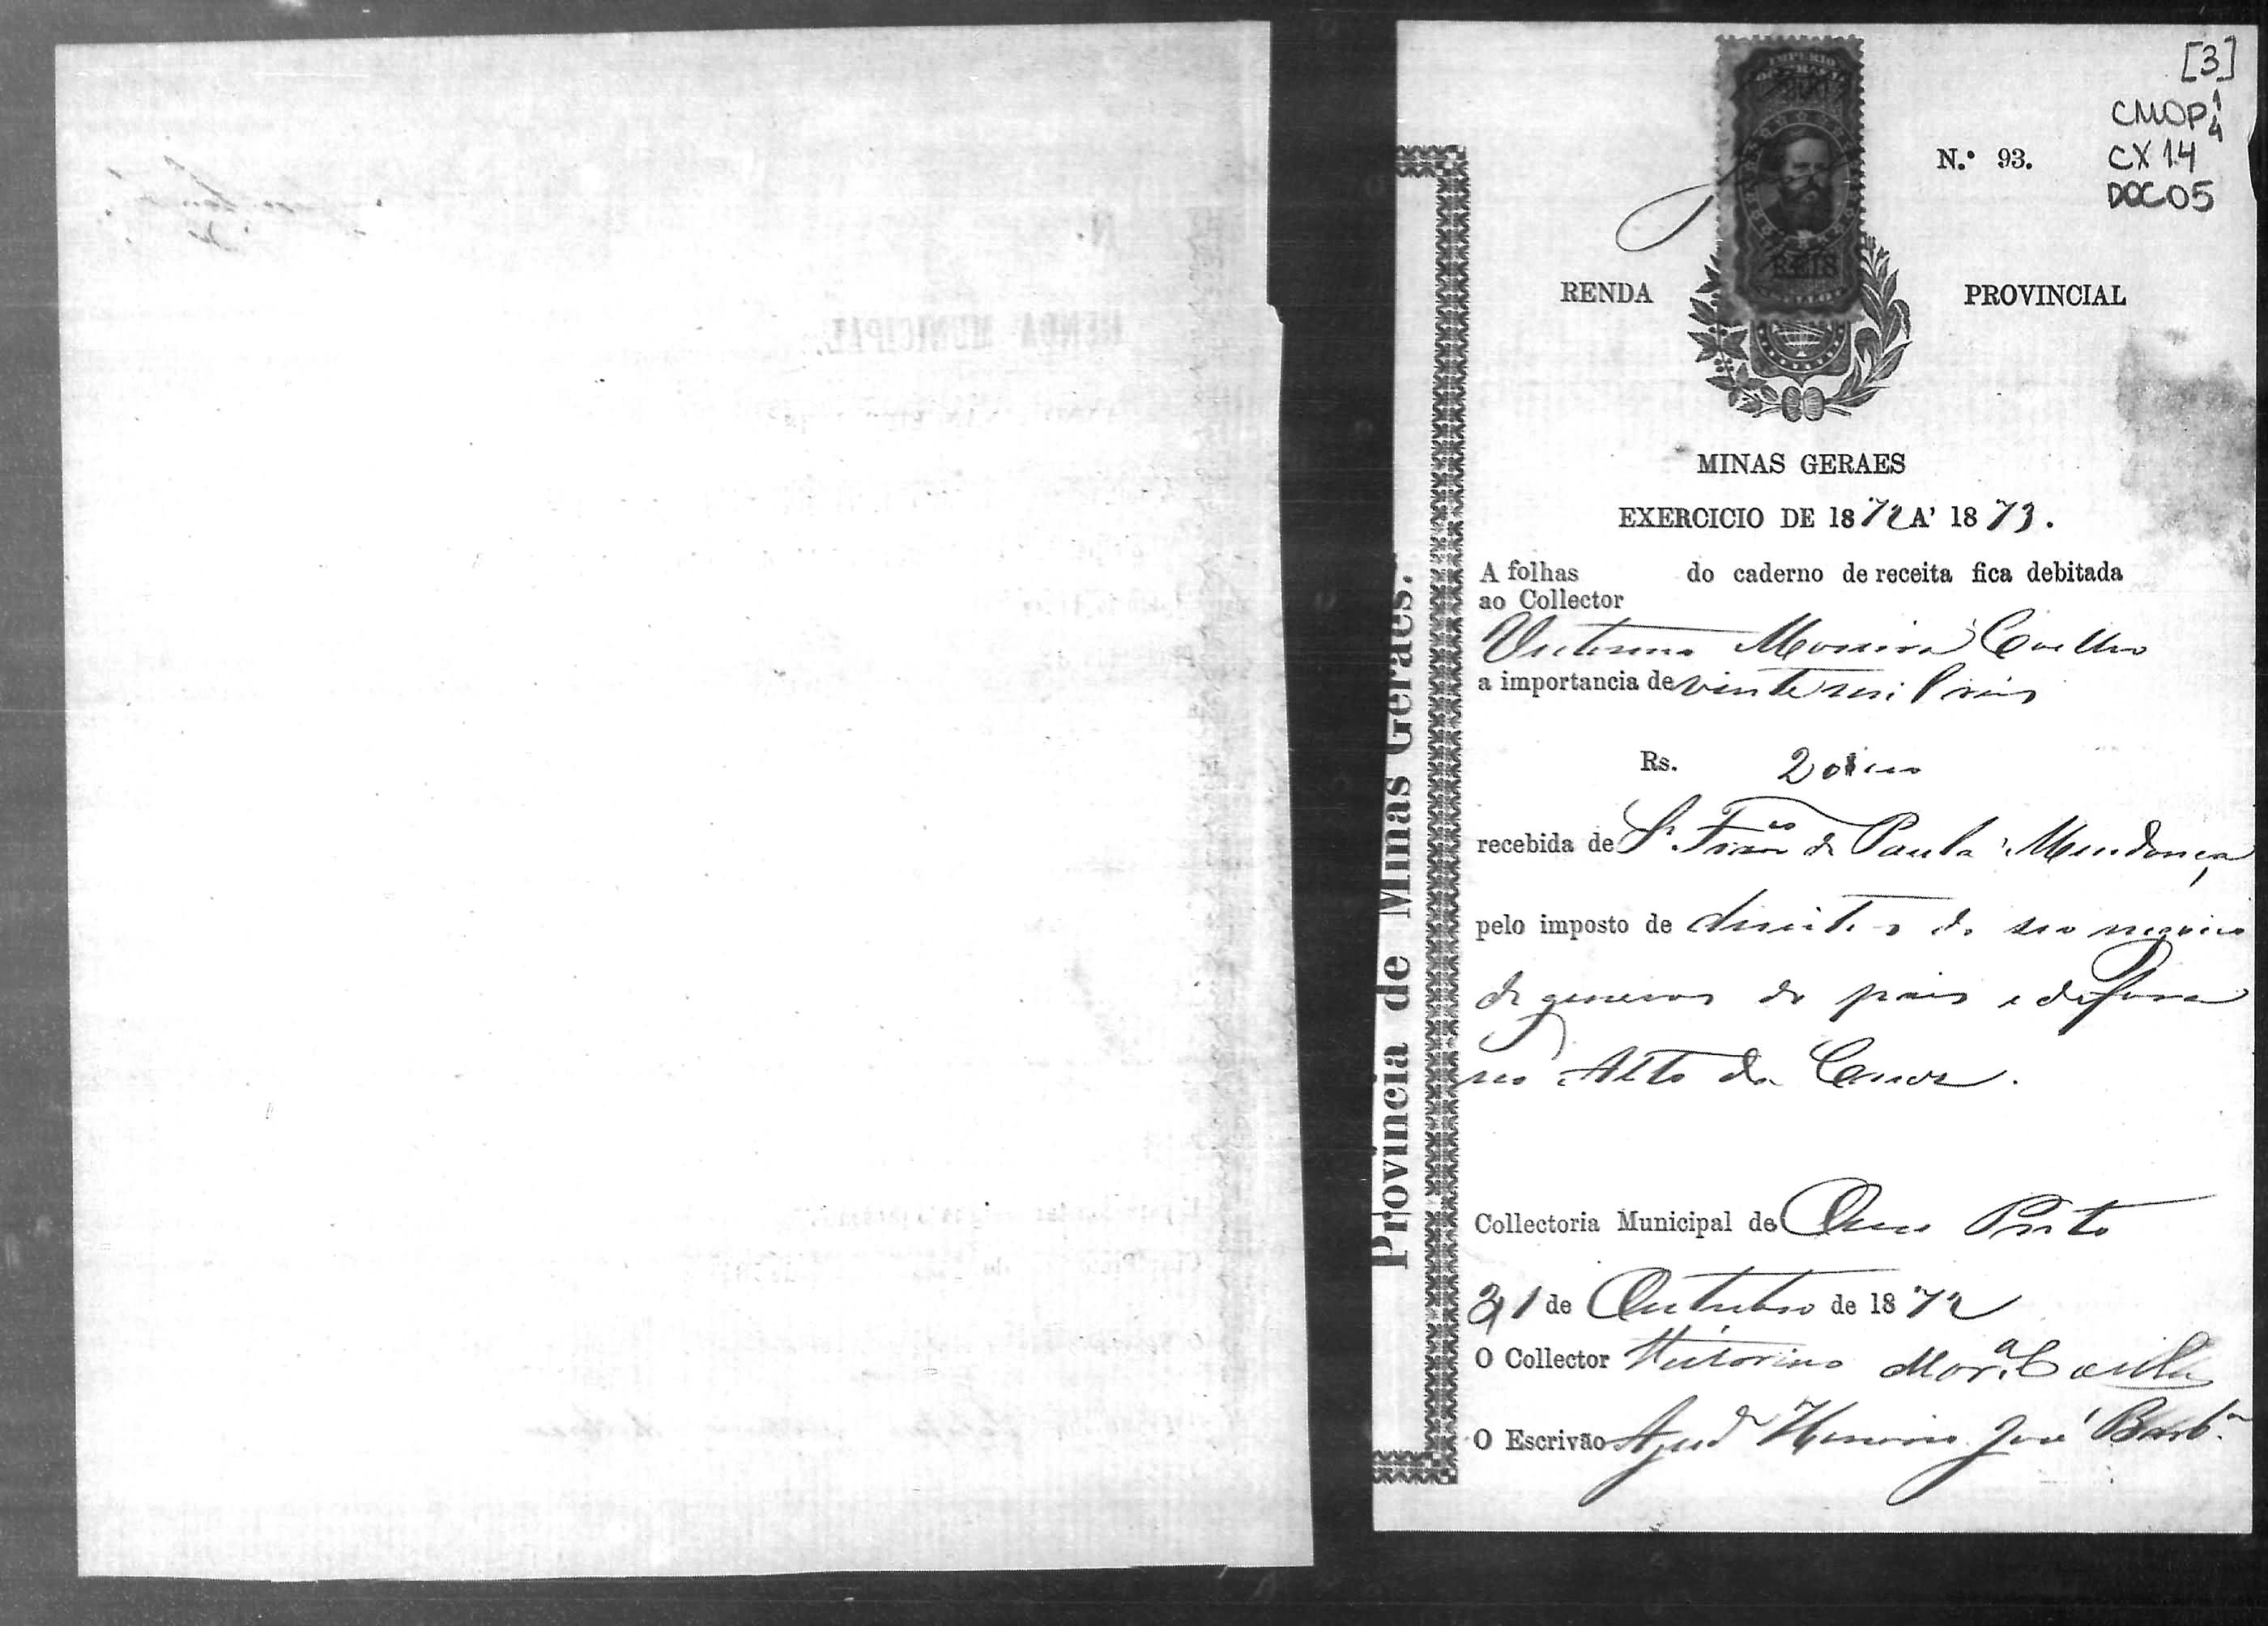 [3]
CMOP 1/4
CX 14
DOC 05
IMPERIO
DO BRAZIL
200
REIS
N.º 93.
RENDA PROVINCIAL
MINAS GERAES
EXERCICIO DE 1872 A' 1873.
A folhas do caderno de receita fica debitada
ao Collector
Victorino Moreira Coelho
a importancia de vinte mil reis
Rs. 20$000
recebida de Sr. Franco de Paula Mendonça
pelo imposto de direitos de seo negocio
de generos do pais e de fora
no Alto da Cruz.
Collectoria Municipal de Ouro Preto
31 de Outubro de 1872
O Collector Victorino Mor.a Coelho
O Escrivão Ajud.e Honorio José Barb.a
Provincia de Minas Geraes.
N.
RENDA MUNICIPAL